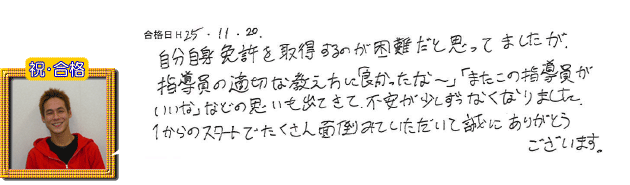 祝・合格
合格日 H 25・11・20.
自分自身免許を取得するのが困難だと思ってましたが、
指導員の適切な教え方に「良かったな～」「またこの指導員が
いいな」などの思いも出てきて、不安が少しずつなくなりました。
1からのスタートでたくさん面倒みていただいて誠にありがとう
ございます。